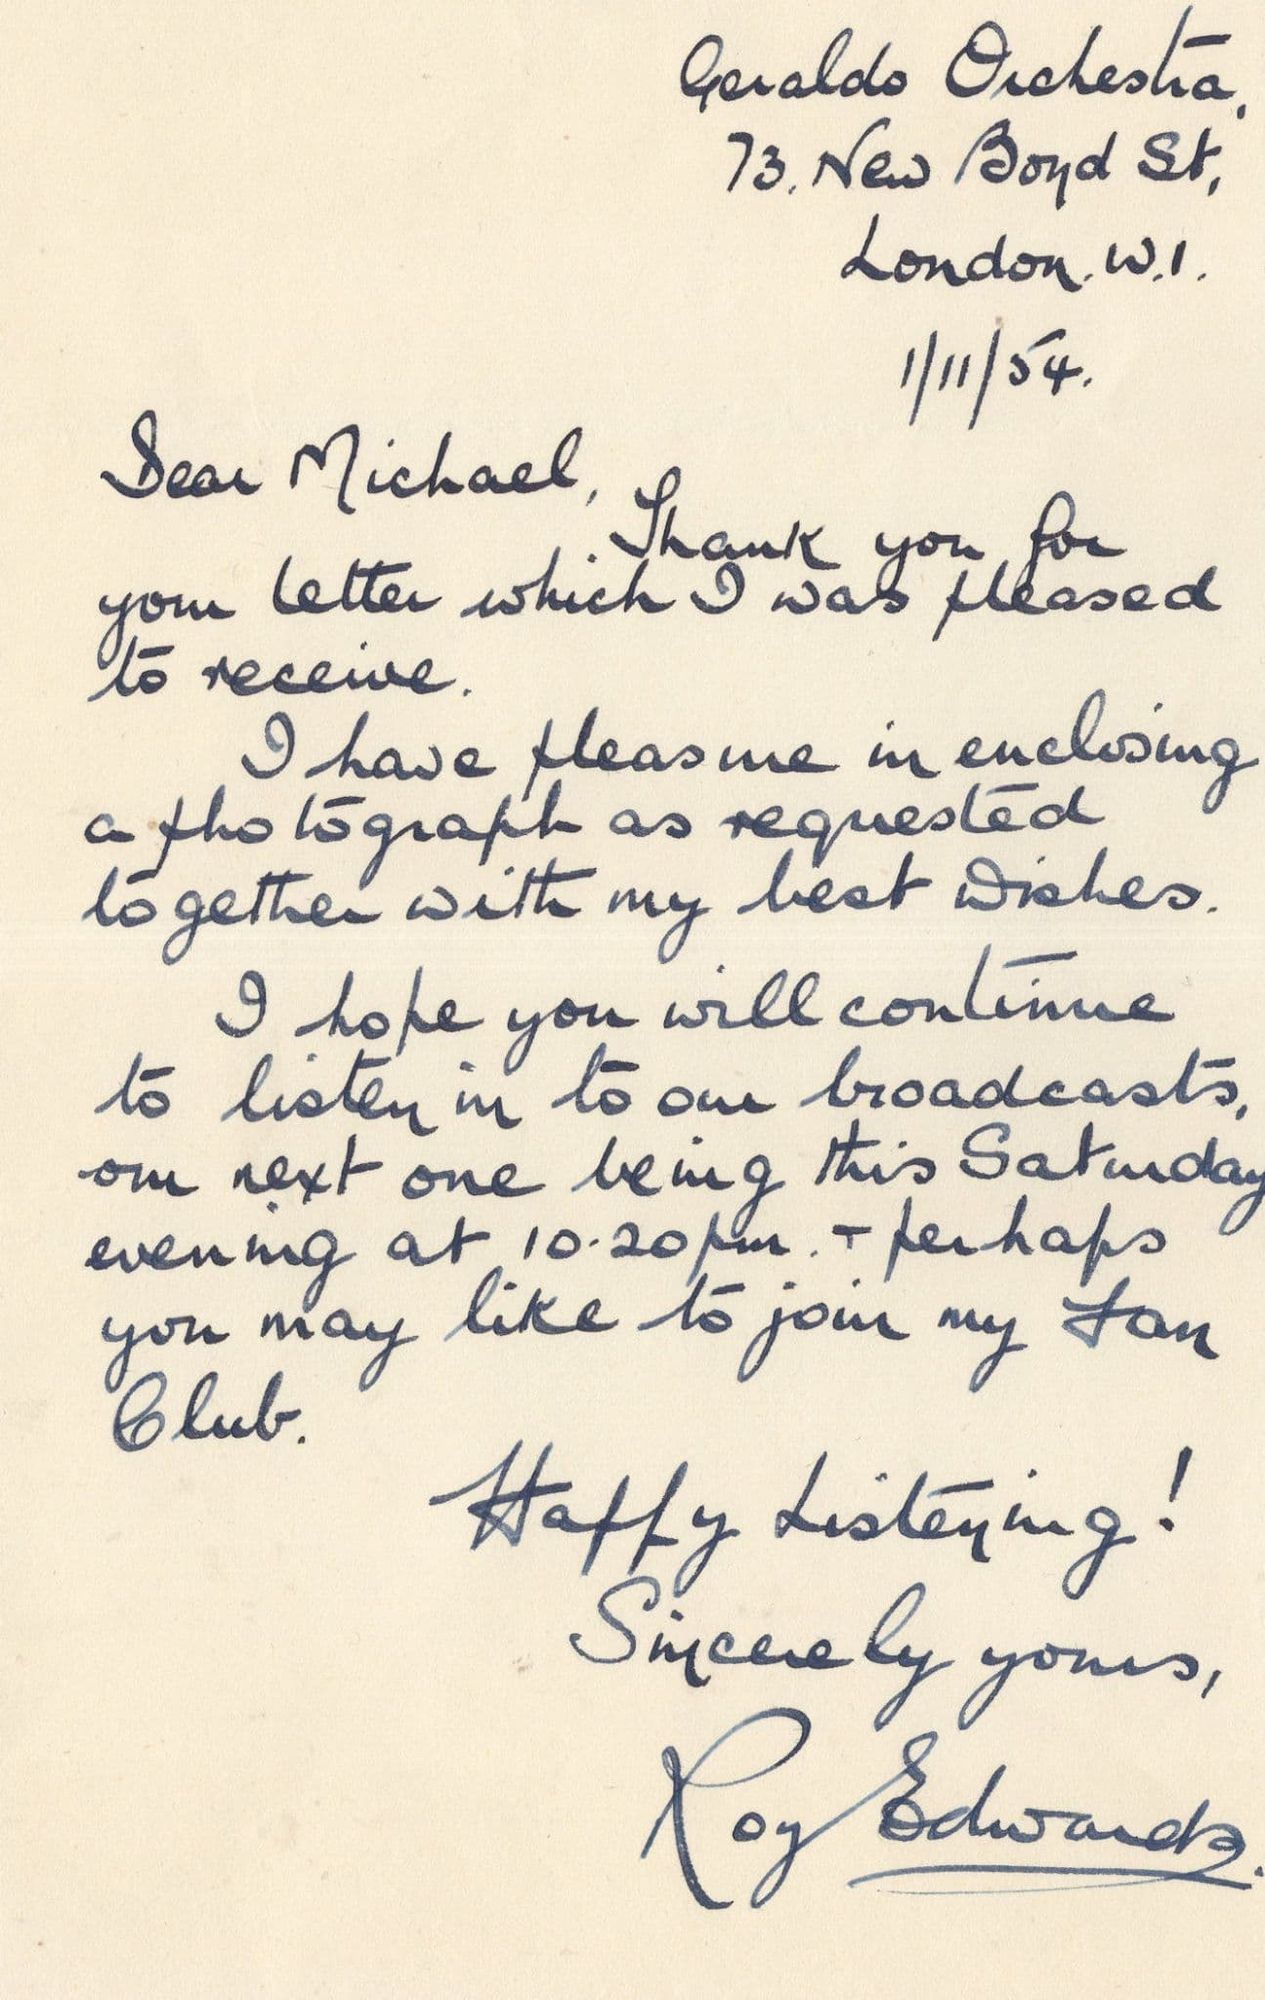 Geraldo Orchestra,
73. New Bond St,
London. W.1.
1/11/54.
Dear Michael,
Thank you for
your letter which I was pleased
to receive.
I have pleasure in enclosing
a photograph as requested
together with my best wishes.
I hope you will continue
to listen in to our broadcasts,
our next one being this Saturday
evening at 10.20pm. - perhaps
you may like to join my Fan
Club.
Happy Listening!
Sincerely yours,
Roy Edwards.